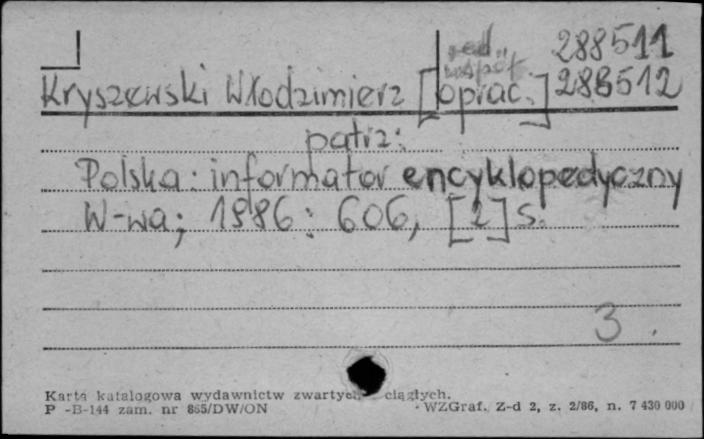 red. 288511
współ.
Kryszewski Włodzimierz [oprac.] 288512
patrz:
Polska: informator encyklopedyczny
W-wa; 1986: 606, [2] s.
3.
Karta katalogowa wydawnictw zwartych ciągłych.
P -B-144 zam. nr 865/DW/ON WZGraf. Z-d 2, z. 2/86, n. 7 430 000